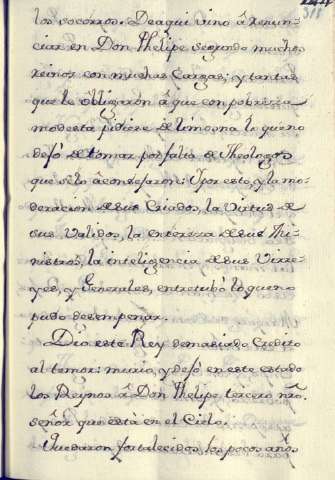 los socorros. De aqui vino â renun-
ciar en Don Phelipe segundo muchos
reinos con muchas Cargas; y tantas
que le obligaron â que con pobreza
modesta pidiese de limosna lo que no
dejó de tomar por falta de Theologos
que se lo âconsejaron: Y por esto, y la mo-
deracion de sus Criados, la virtud de
sus Validos, la entereza de sus Mi-
nistros, la inteligencia de sus Virre-
yes, y Generales, entretubó lo que no
pudo desempeñar.
Dió este Rey demasiado Credito
al temor: murio, y dejó en este estado
los Reynos â Don Phelipe tercero nró.
señor que está en el Cielo.
Quedaron fortalecidos los pocos años